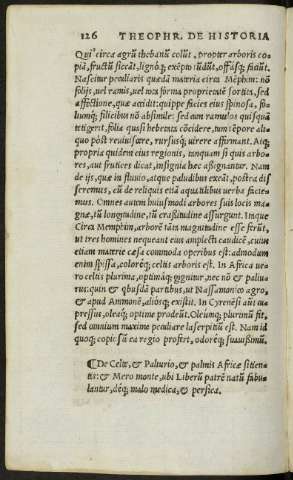 126 THEOPHR. DE HISTORIA
Qui circa agrū thebanū colūt, propter arboris co
piā, fructū siccāt, lignóq; exēpto tūdūt, offasq; faciūt.
Nascitur peculiaris quædā materia circa Mēphim: nō
folijs, uel ramis, uel tota forma proprietatē sortita, sed
affectione, quæ accidit: quippe facies eius spinosa, fo
liumq; filicibus nō absimile: sed cum ramulos quisquā
tetigerit, folia quasi hebenea cōcidere, tum tēpore ali-
quo pòst reuiuiscere, rursusq; uirere affirmant. Atq;
propria quidem eius regionis, tanquam si quis arbo-
res, aut frutices dicat, insignia hæc assignantur. Nam
de ijs, quæ in fluuio, atque paludibus exeāt, postea dis
seremus, cū de reliquis etiā aquatilibus uerba facie-
mus. Omnes autem huiusmodi arbores suis locis ma-
gnæ, tū longitudine, tū crassitudine assurgunt. Inque
Circa Memphim, arborē tāta magnitudine esse ferūt,
ut tres homines nequeant eius amplecti caudicē, cuius
etiam matrie cæsa commoda operibus est: admodum
enim spissa, colorēq; celtis arboris est. In Africa ue-
ro celtis plurima, optimáq; gignitur, nec nō & paliu-
rus: quin & qbusdā partibus, ut Nassamonico agro,
& apud Ammonē, aliósq; existit. In Cyrenēsi aūt cu
pressus, oleáq; optime prodeūt. Oleumq; plurimū fit,
sed omnium maxime peculiare laserpitiū est. Nam id
quoq; copio sā ea regio profert, odorēq; suauissimū.
¶De Celte, & Paliurio, & palmis Africæ sitien-
tis: & Mero monte, ubi Liberū patrē natū fabu-
lantur, déq; malo medica, & persica.